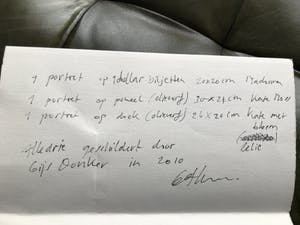 1 portret op 1 dollar biljetten 20x20cm
1 portret op paneel (olieverf) 30x24cm Kate Moss
1 portret op doek (olieverf) 24x20cm Kate met
bloem
Lelie
Alledrie geschilderd door
Gijs Donker in 2010